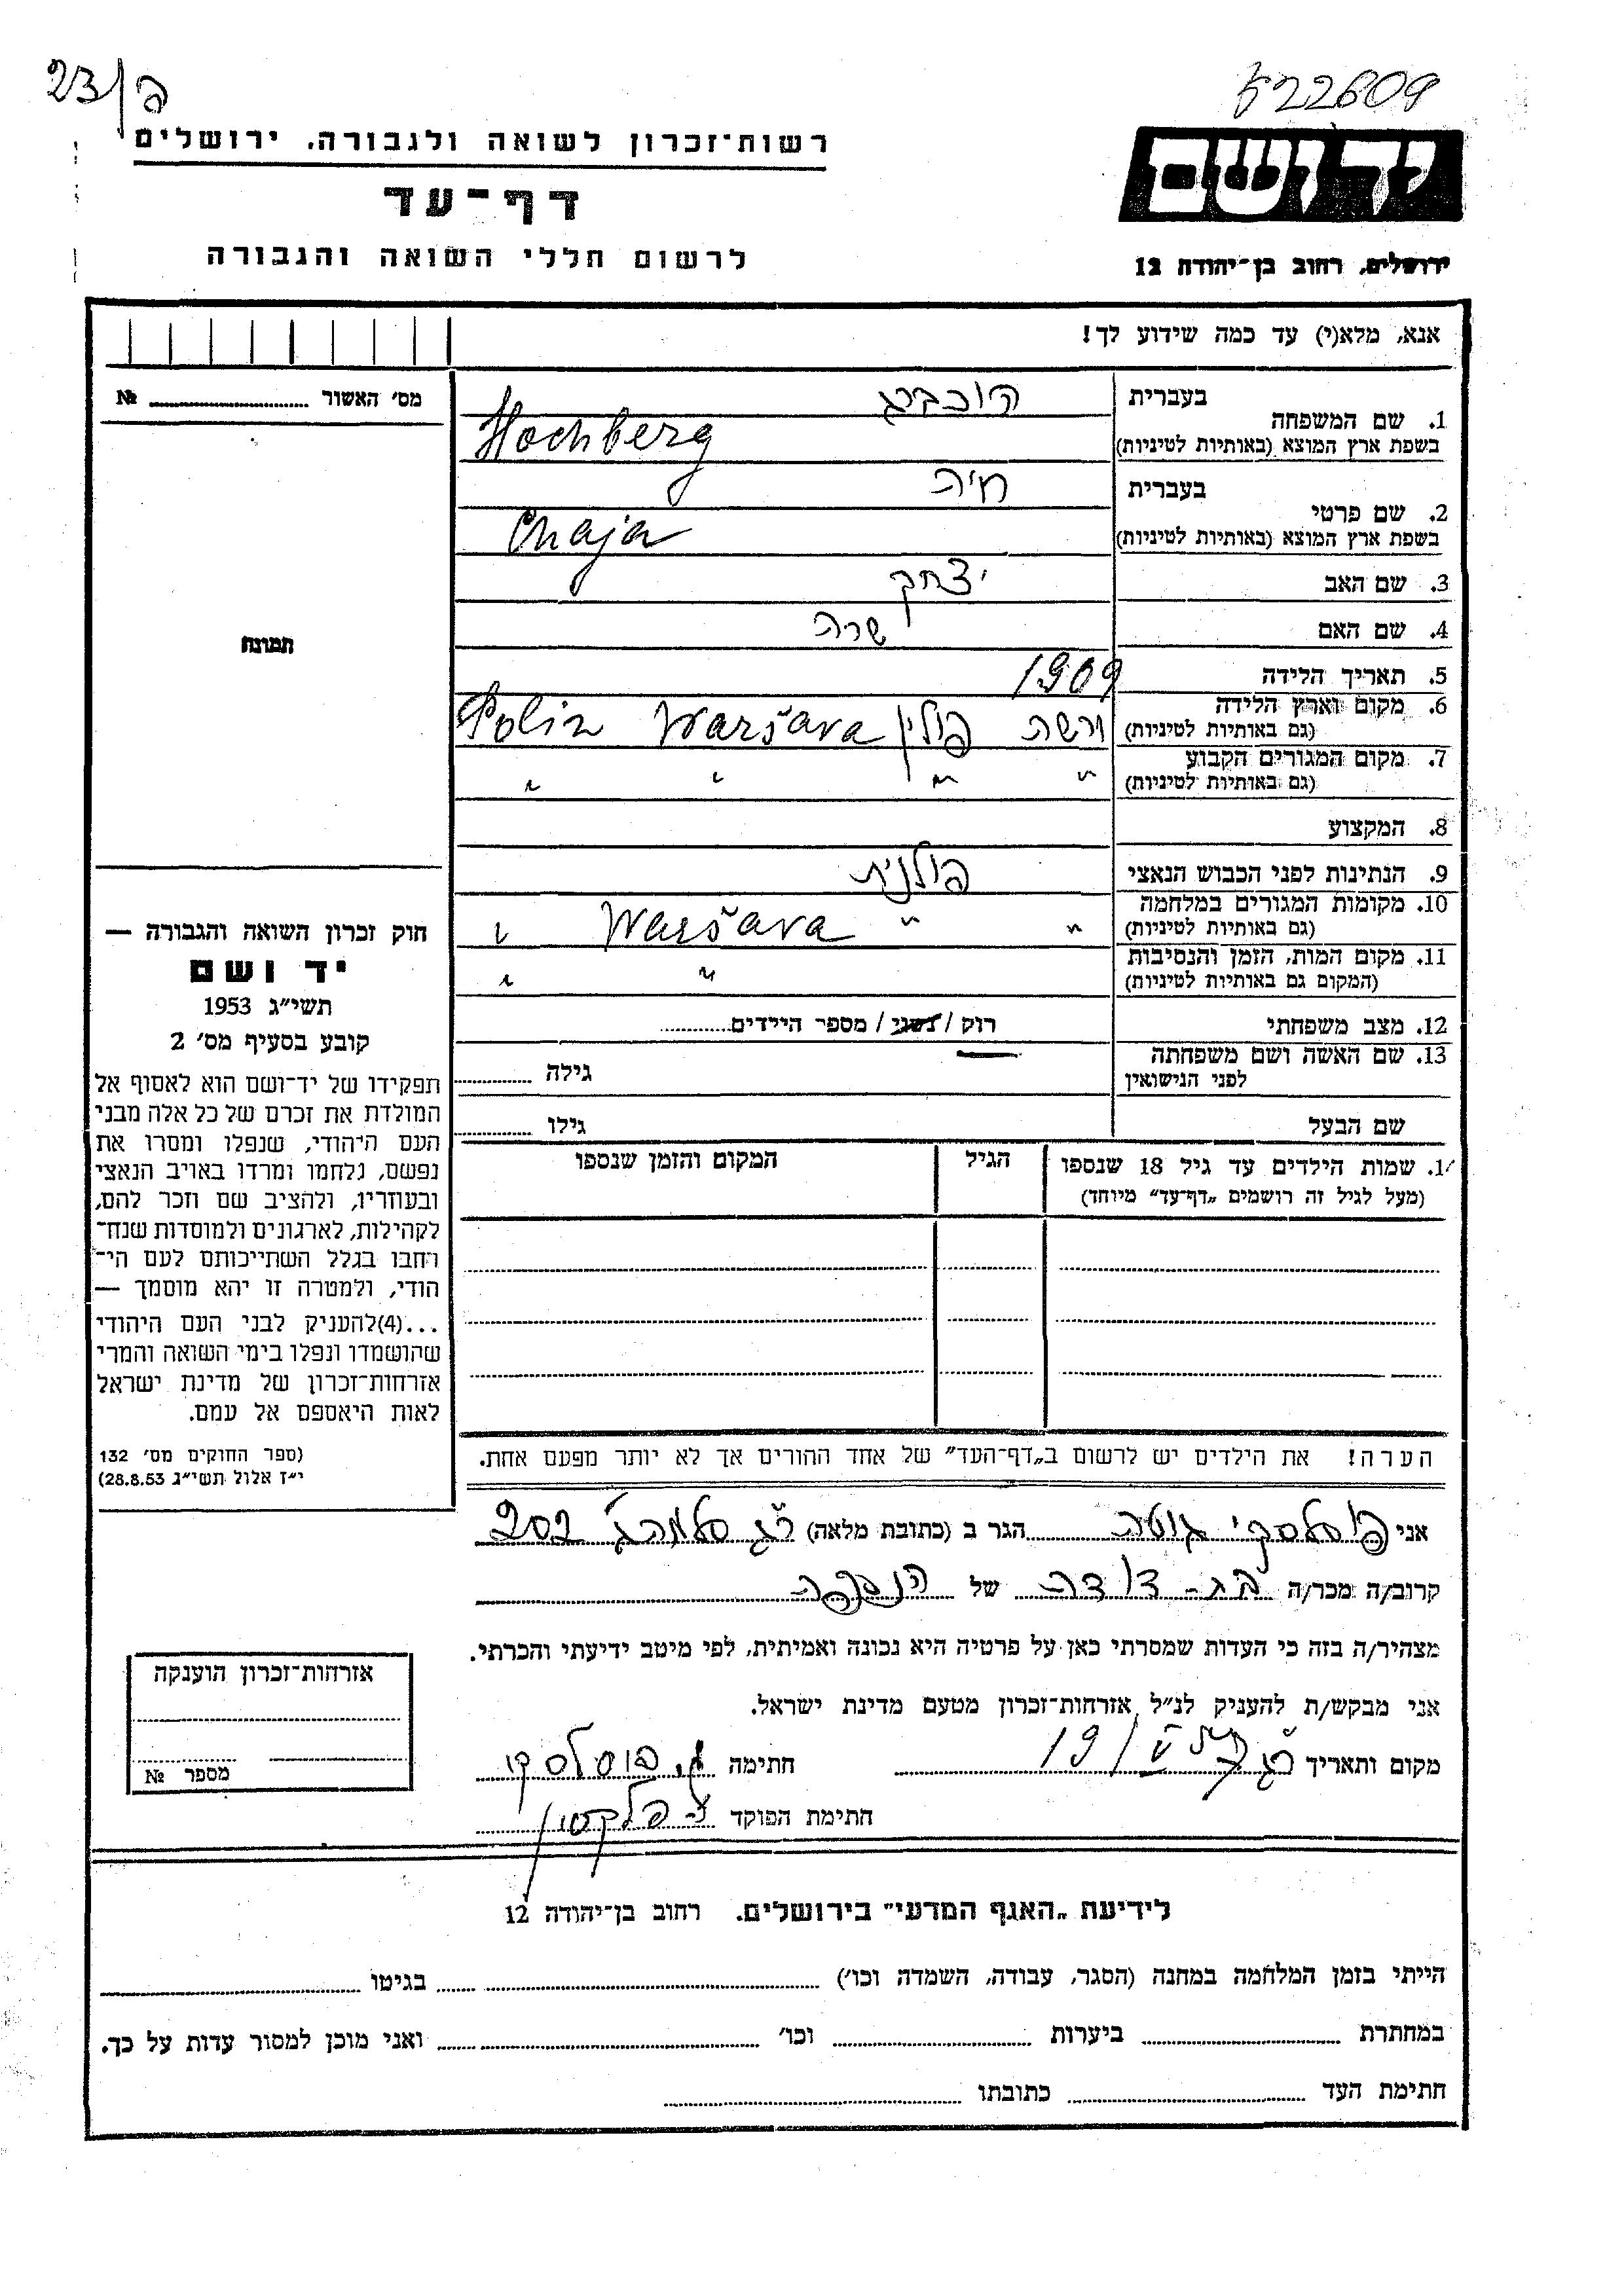 23/פ
522609
רשות־זכרון לשואה ולגבורה. ירושלים
יד ושם
דף־עד
לרשום חללי השואה והגבורה
ירושלים, רחוב בן־יהודה 12
אנא, מלא(י) עד כמה שידוע לך!
מס׳ האשור № 
תמונה
בעברית הוכברג
1. שם המשפחה
בשפת ארץ המוצא (באותיות לטיניות) Hochberg
בעברית חיה
2. שם פרטי
בשפת ארץ המוצא (באותיות לטיניות) Chaja
3. שם האב יצחק
4. שם האם שרה
5. תאריך הלידה 1909
6. מקום וארץ הלידה
(גם באותיות לטיניות) ורשה פולין Waršava Polin
7. מקום המגורים הקבוע
(גם באותיות לטיניות) " " " "
8. המקצוע
9. הנתינות לפני הכבוש הנאצי פולנית
10. מקומות המגורים במלחמה
(גם באותיות לטיניות) " " Waršava "
11. מקום המות, הזמן והנסיבות
(המקום גם באותיות לטיניות) " "
12. מצב משפחתי רוק / נשוי / מספר הילדים
13. שם האשה ושם משפחתה
לפני הנישואין גילה
שם הבעל גילו
1. שמות הילדים עד גיל 18 שנספו הגיל המקום והזמן שנספו
(מעל לגיל זה רושמים „דף־עד" מיוחד)
חוק זכרון השואה והגבורה —
יד ושם
תשי״ג 1953
קובע בסעיף מס׳ 2
תפקידו של יד־ושם הוא לאסוף אל
המולדת את זכרם של כל אלה מבני
העם היהודי, שנפלו ומסרו את
נפשם, נלחמו ומרדו באויב הנאצי
ובעוזריו, ולהציב שם וזכר להם,
לקהילות, לארגונים ולמוסדות שנח־
רחבו בגלל השתייכותם לעם הי־
הודי, ולמטרה זו יהא מוסמך —
...(4)להעניק לבני העם היהודי
שהושמדו ונפלו בימי השואה והמרי
אזרחות־זכרון של מדינת ישראל
לאות היאספם אל עמם.
(ספר החוקים מס׳ 132
י״ז אלול תשי״ג 28.8.53)
הערה! את הילדים יש לרשום ב„דף־העד" של אחד ההורים אך לא יותר מפעם אחת.
אני פוסלסקי גוטה הגר ב (כתובת מלאה) רג סלומה 202
קרוב/ה מכר/ה בת-דודה של הנספה
מצהיר/ה בזה כי העדות שמסרתי כאן על פרטיה היא נכונה ואמיתית, לפי מיטב ידיעתי והכרתי.
אני מבקש/ת להעניק לנ״ל אזרחות־זכרון מטעם מדינת ישראל.
מקום ותאריך רג 19/V חתימה ג. פוסלסקי
חתימת הפוקד
אזרחות־זכרון הוענקה
מספר №
לידיעת „האגף המדעי" בירושלים. רחוב בן־יהודה 12
הייתי בזמן המלחמה במחנה (הסגר, עבודה, השמדה וכו׳) בגיטו
במחתרת ביערות וכו׳ ואני מוכן למסור עדות על כך.
חתימת העד כתובתו